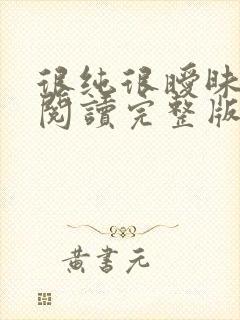 很純很曖昧
閱讀完整版
黃書元